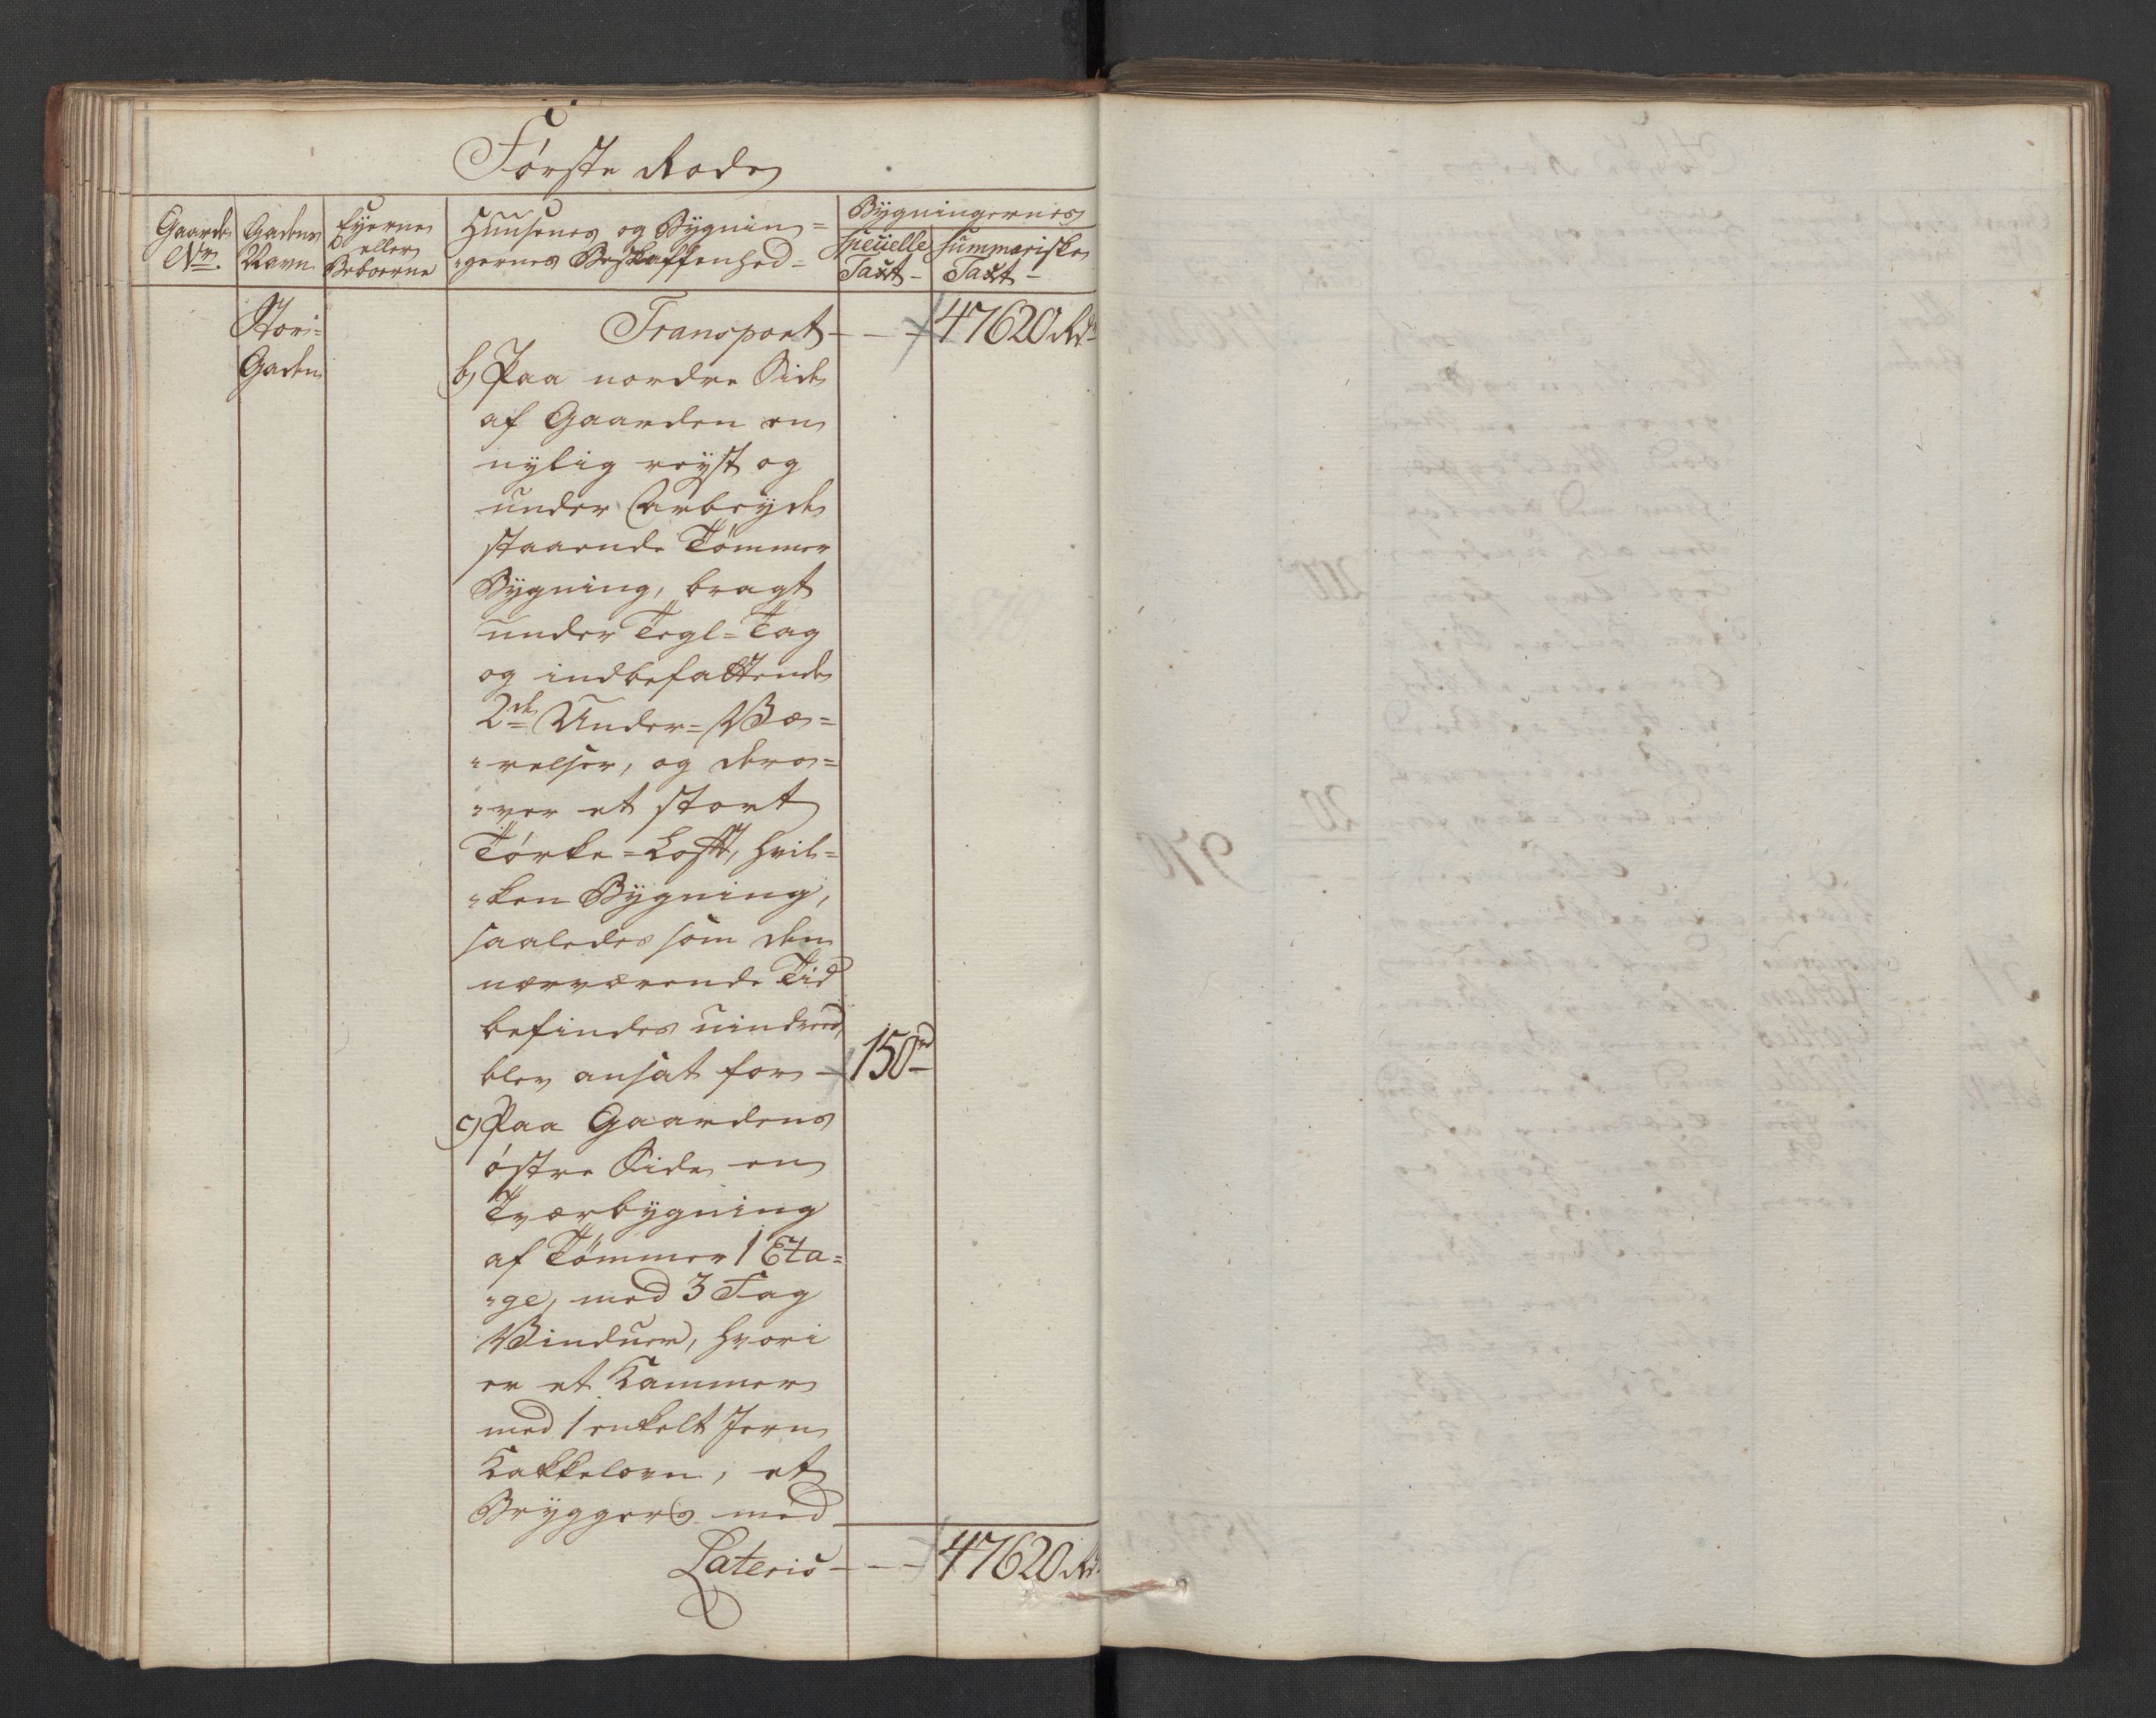 Første Rode
Gaardens Nr.
Gadens Navn
Eyerne eller Beboerne
Huusenes og Bygnin=
=gernes Beskaffenhed=
Bygningernes
specielle Taxt-
summariske Taxt-
Stor=
Gaden
Transport - - - 47620 Rd
b) Paa nordre Side
af Gaarden en
nylig reyst og
under Arbeyde
staaende Tømmer
Bygning, bragt
under Tegl=Tag
og indbefattende
2de Under=Væ=
=relser, og dero=
=ver et stort
Tørke=Loft, hvil=
=ken Bygning,
saaledes som den
nærværende Tid
befindes uindreed,
blev ansat for - 150rd
c) Paa Gaardens
østre Side en
Tværbygning
af Tømmer 1 Eta=
=ge, med 3 Fag
Vinduer, hvori
er et Kammer
med 1 enkelt Jern
Kakkelovn, et
Bryggers med
Lateris - - - 47620 Rd